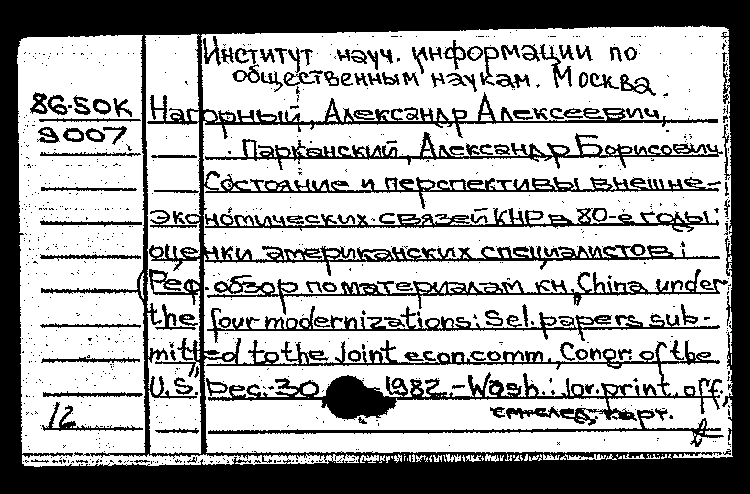 Институт науч. информации по
общественным наукам. Москва.
86-5OK Нагорный, Александр Алексеевич,
9007 Парканский, Александр Борисович
Состояние и перспективы внешне-
экономических связей КНР в 80-е годы:
оценки американских специалистов:
(Реф. обзор по материалам кн. "China under
the four modernizations: Sel. papers sub-
mitted to the Joint econ. comm., Congr. of the
U.S." Dec. 30, 1982. - Wash.: Gov. print. off,
12 см. след. карт.